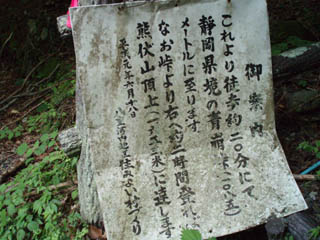 御案内
これより徒歩約二〇分にて
静岡県境の青崩峠(一〇八五
メートルに至ります
なお峠より右へ約二時間登れば
熊伏山頂上(一六五三米)に達します
平成元年六月十八日
水窪町